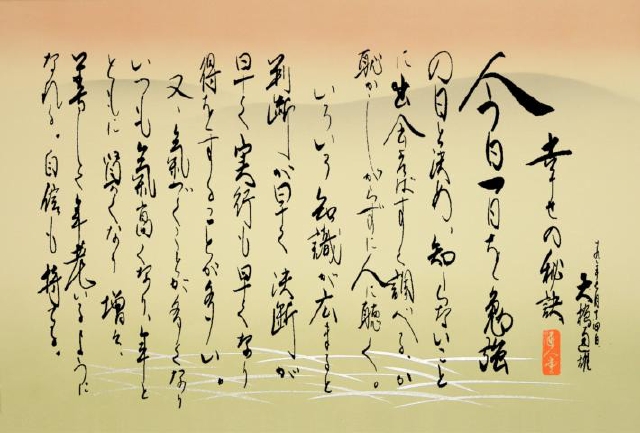 幸せの秘訣
今日一日を勉強
の日と決め、知らないこと
に出会えばすぐ調べるか
恥かしがらずに人に聴く。
いろいろ知識が広まると
判断が早く決断が
早く実行も早くなり
得をすることが多い。
又、氣づくことが多くなり
いつも氣高くなり、年と
ともに賢くなり増々、
美しく年老いるように
なれる。自信も持てる。